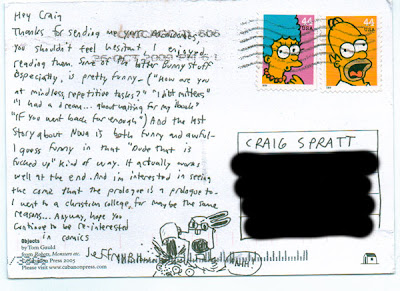 Hey Craig
Thanks for sending me your
You shouldn't feel hesitant, I enjoyed
reading them. Some of the latter Bunny stuff
especially, is pretty funny - ("How are you
at mindless, repetitive tasks?" "i bit mittens"
"I had a dream... about waiting for my"
"If you went back far enough") And the last
story about Nova is both funny and awful -
I guess funny in that "Dude that is
fucked up" kind of way. It actually works
well at the end. And i'm interested in seeing
the comic that the prologue is a prologue to -
I went to a christian college, for maybe the same
reasons... Anyway, hope you
continue to be re-interested
in comics
Jeffrey
44
44
CRAIG SPRATT
Objects
by Tom Gauld
from Robots, Monsters etc.
Cabanon Press 2005
Please visit www.cabanonpress.com